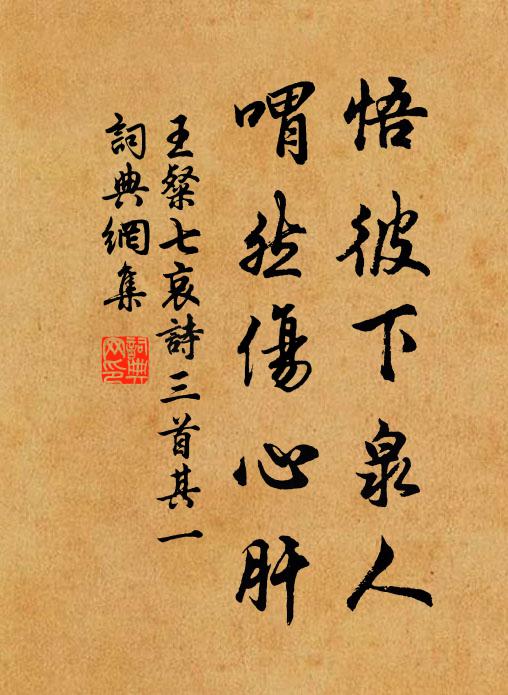 悟彼下泉人
喟然傷心肝
王粲七哀詩三首其一
詞典網集
詞典網印